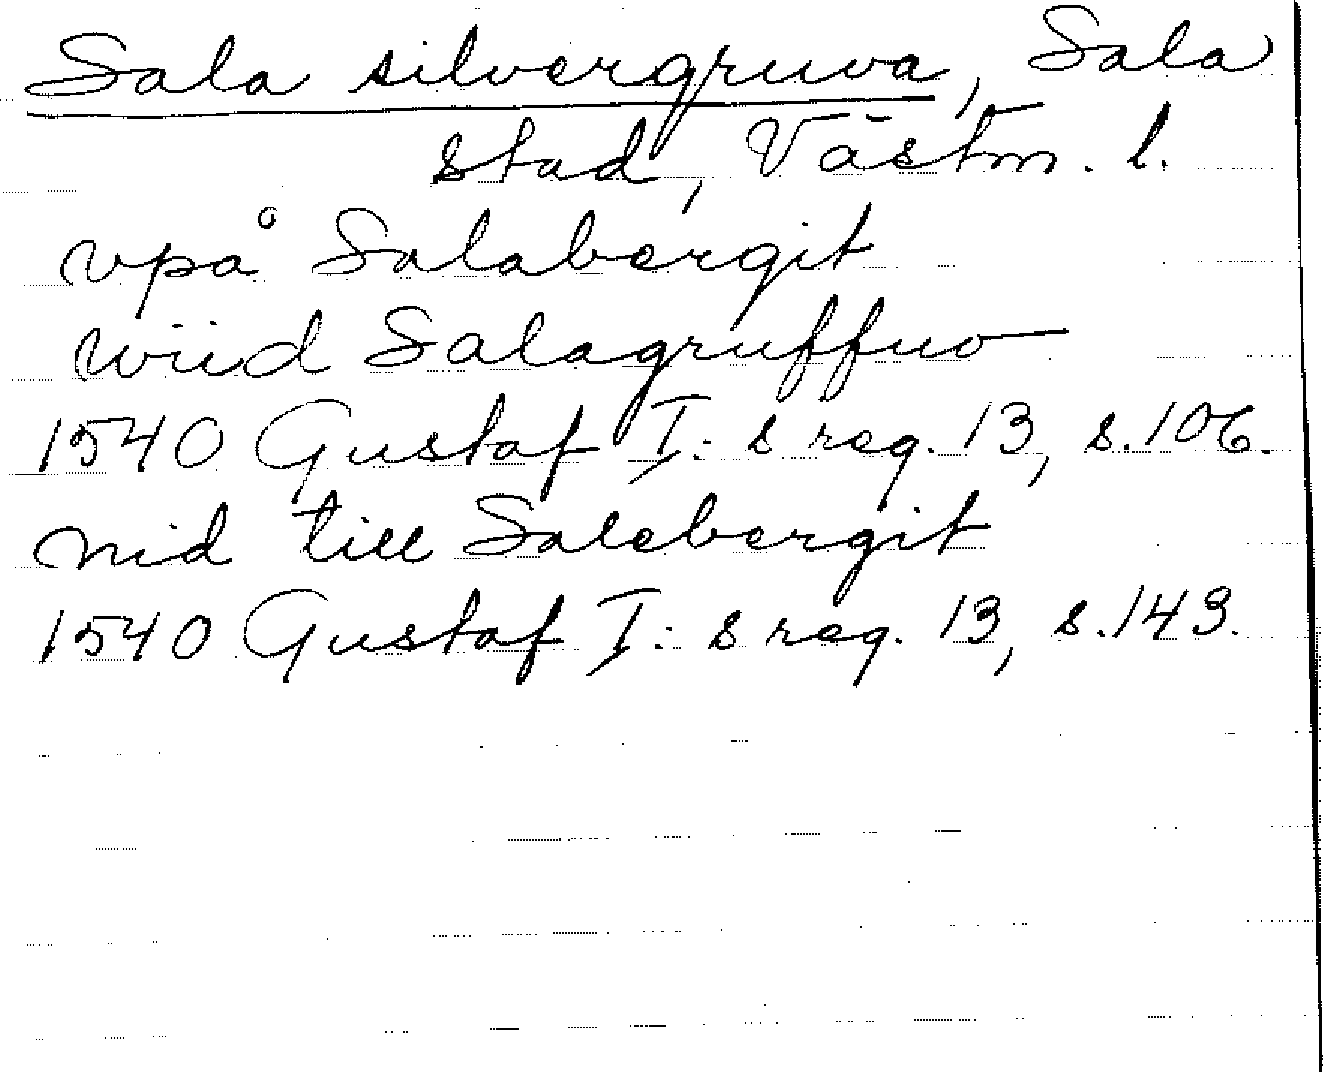 Sala silvergruva, Sala
stad, Västm. l.
vpå Salabergit
wiid Salagruffuo
1540 Gustaf I:s reg. 13, s. 106.
nid till Salebergit
1540 Gustaf I:s reg. 13, s. 143.